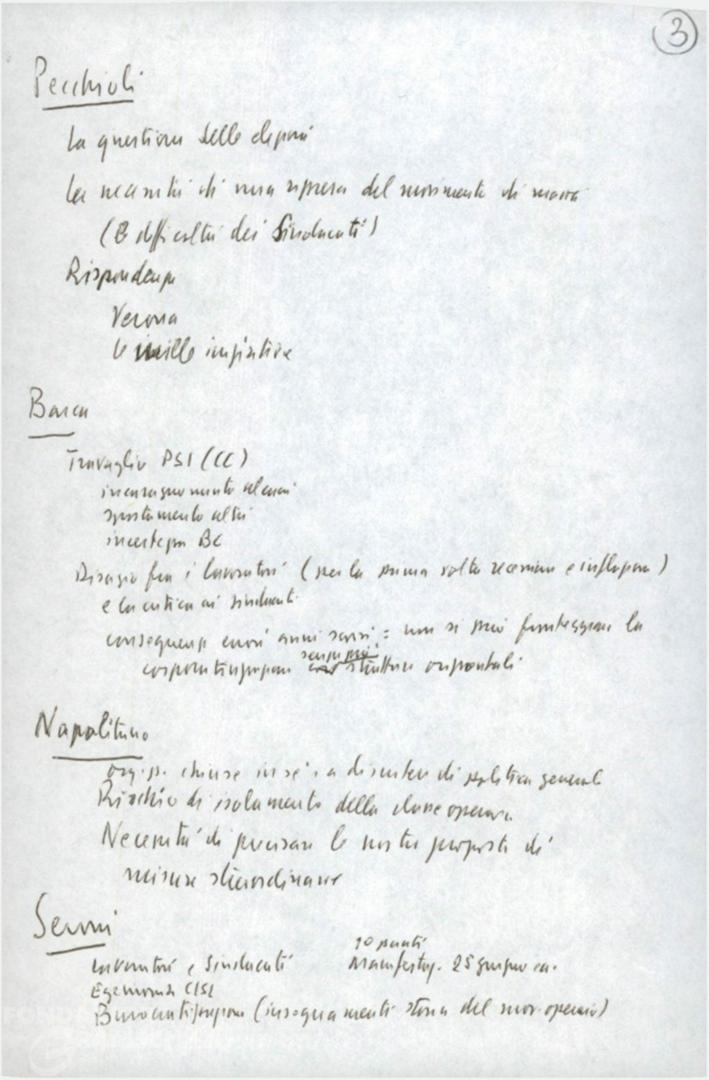 3
Pecchioli
La questione delle
La necessità di una ripresa del movimento di massa
(e difficoltà dei Sindacati)
Rispondenza
Verona
le mille iniziative
Barca
Travaglio PSI (CC)
incoraggiamento alcuni
spostamento altri
incertezza BC
Disagio fra i lavoratori (per la prima volta recessione e inflazione)
e la critica ai sindacati
conseguenze anni scorsi: non si può fronteggiare la
corporativizzazione senza più strutture orizzontali
Napolitano
org. p. chiuse in sé a discutere di politica generale
Rischio di isolamento della classe operaia
Necessità di precisare le nostre proposte di
misure straordinarie
Seroni
Lavoratori e Sindacati
10 punti
Manifestaz. 25 giugno
Egemonia CISL
Burocratizzazione (insegnamenti storia del mov. operaio)